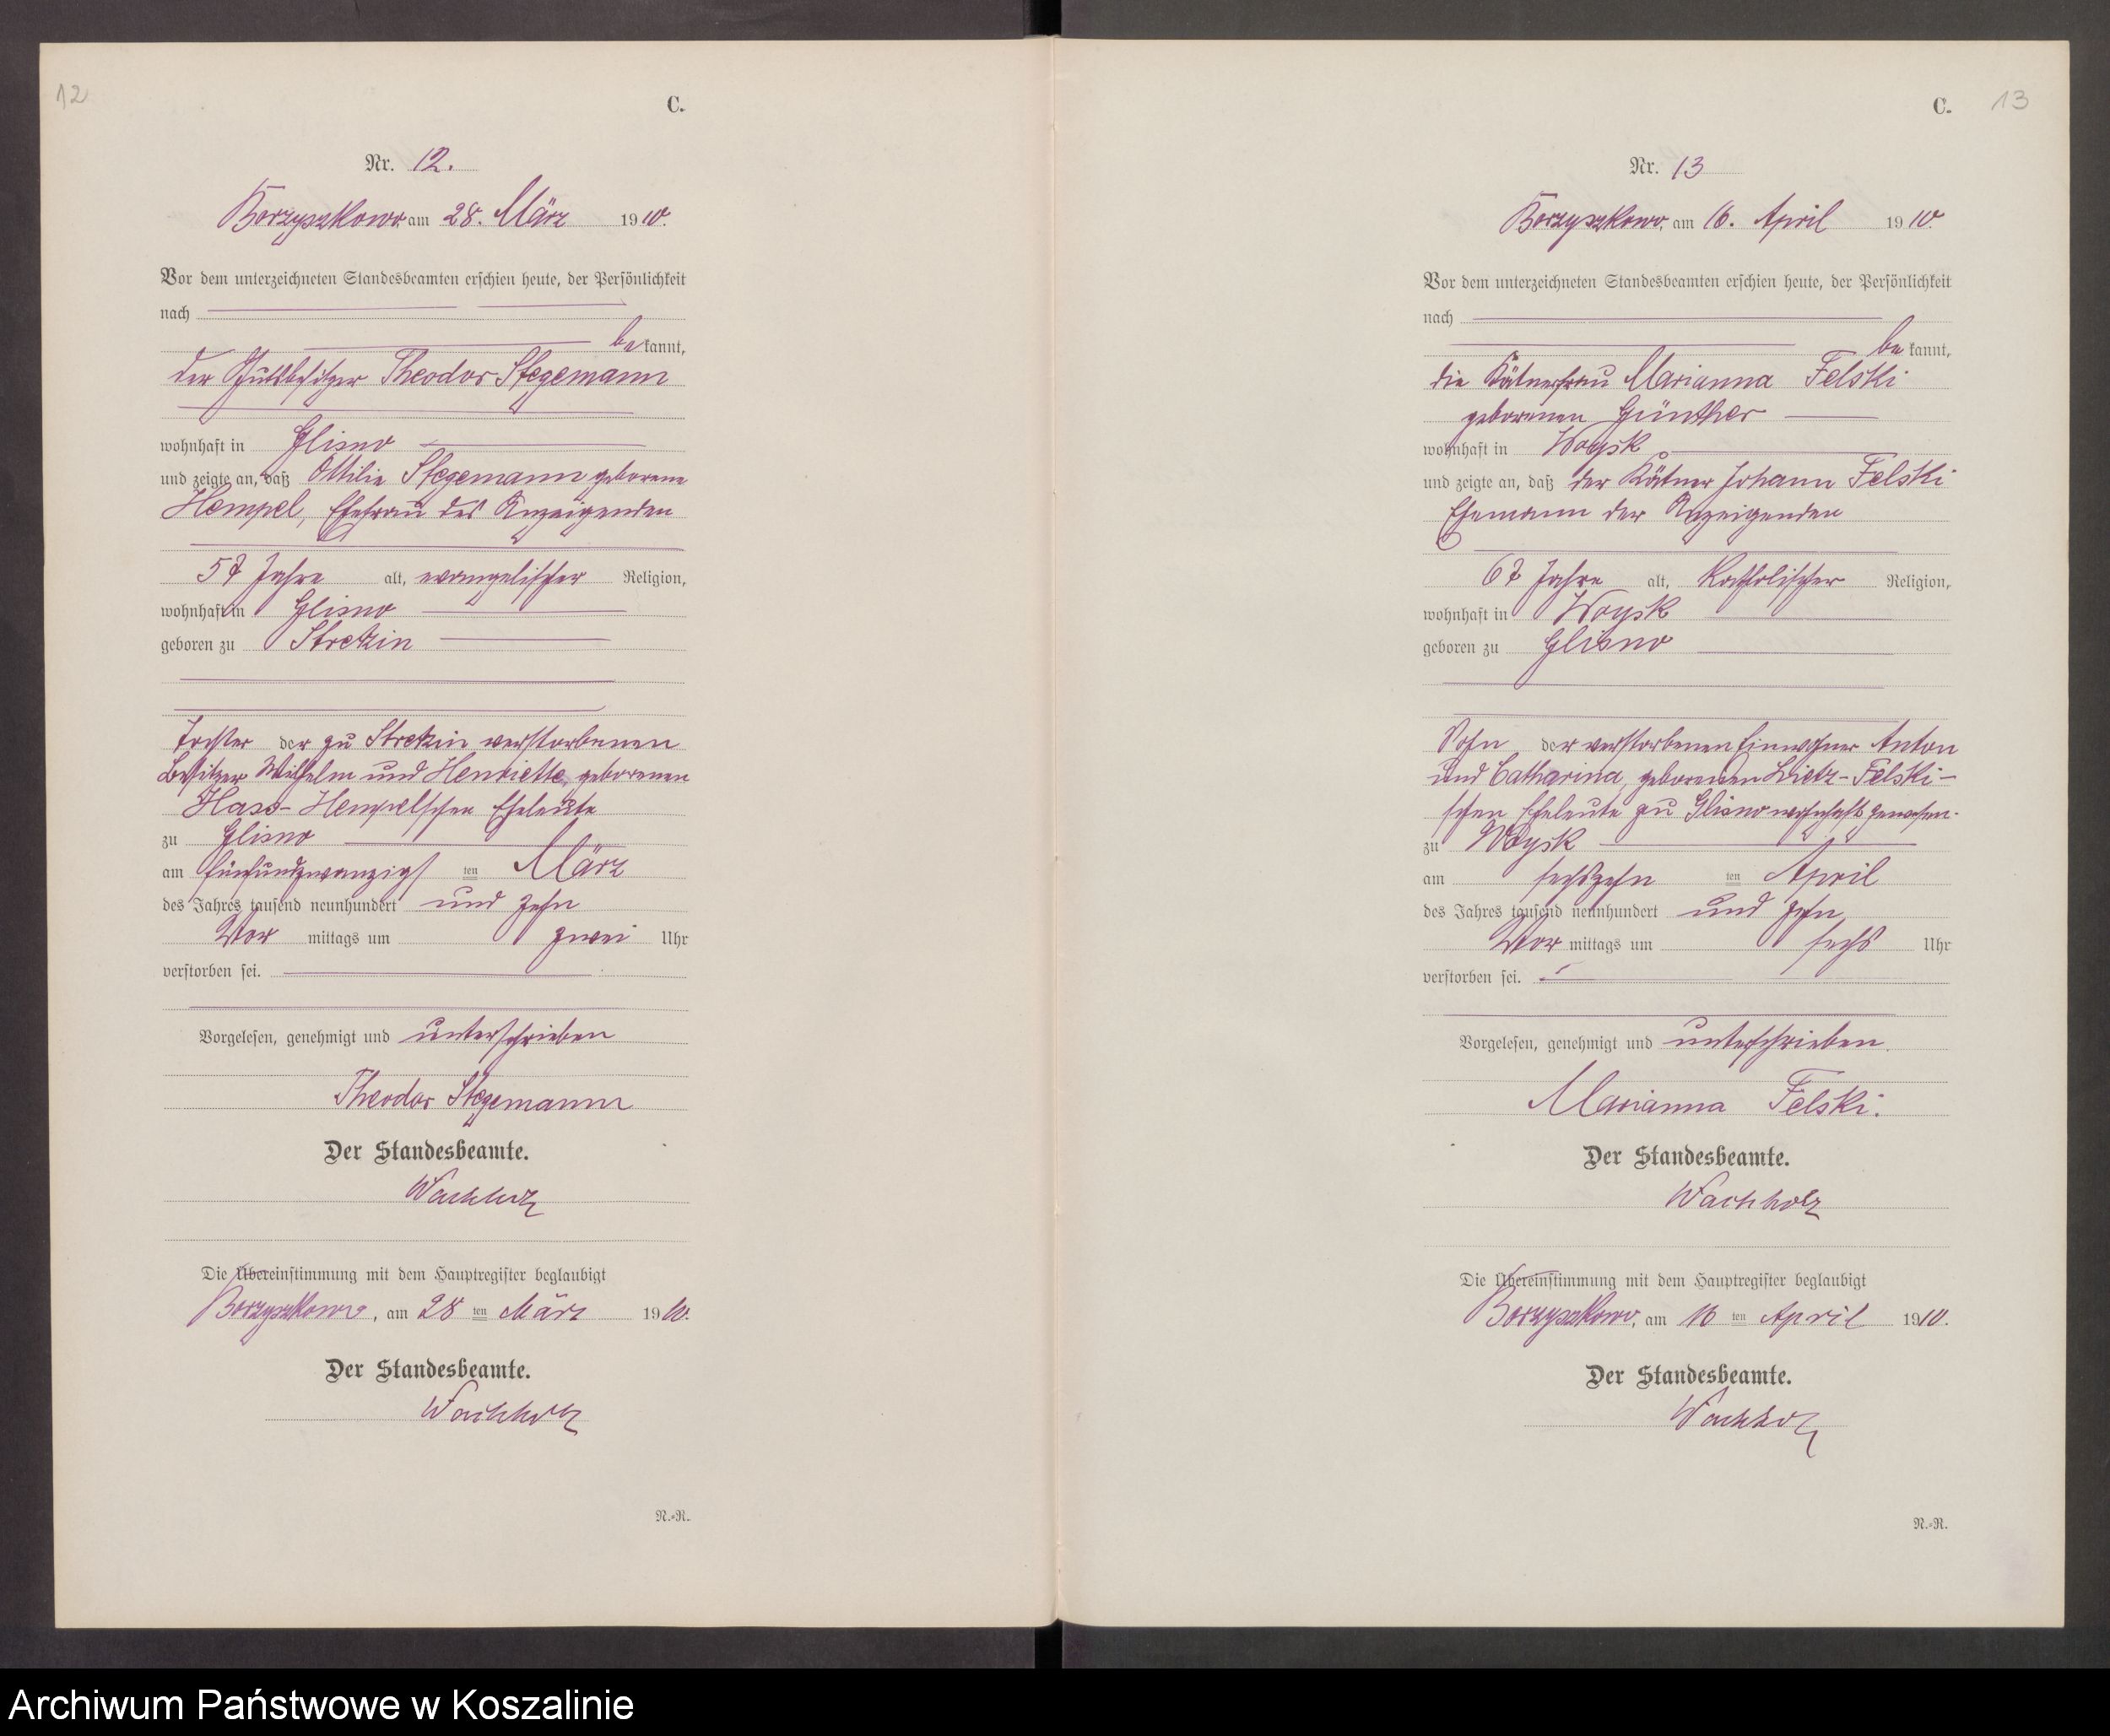 12
C.
Nr. 12.
Borzyszkowo am 28. März 1910.
Vor dem unterzeichneten Standesbeamten erschien heute, der Persönlichkeit
nach
be kannt,
der Gutsbesitzer Theodor Stegemann
wohnhaft in Glisno
und zeigte an, daß Ottilie Stegemann geborene
Hempel, Ehefrau des Anzeigenden
57 Jahre alt, evangelischer Religion,
wohnhaft in Glisno
geboren zu Stretzin
Tochter der zu Stretzin verstorbenen
Besitzer Wilhelm und Henriette, geborenen
Hass-Hempelschen Eheleute
zu Glisno
am fünfundzwanzigs ten März
des Jahres tausend neunhundert und zehn
Vor mittags um zwei Uhr
verstorben sei.
Vorgelesen, genehmigt und unterschrieben
Theodor Stegemann
Der Standesbeamte.
Wachholz
Die Übereinstimmung mit dem Hauptregister beglaubigt
Borzyszkowo, am 28 ten März 1910.
Der Standesbeamte.
Wachholz
N.=R.
C. 13
Nr. 13
Borzyszkowo, am 16. April 1910.
Vor dem unterzeichneten Standesbeamten erschien heute, der Persönlichkeit
nach
be kannt,
die Kätnerfrau Marianna Felski
geborenen Günther
wohnhaft in Woysk
und zeigte an, daß der Kätner Johann Felski
Ehemann der Anzeigenden
67 Jahre alt, katholischer Religion,
wohnhaft in Woysk
geboren zu Glisno
Sohn der verstorbenen Einwohner Anton
und Catharina, geborenen Dietz-Felski-
schen Eheleute zu Glisno wohnhaft gewesen.
zu Woysk
am sechszehn ten April
des Jahres tausend neunhundert und zehn
Vor mittags um sechs Uhr
verstorben sei.
Vorgelesen, genehmigt und unterschrieben.
Marianna Felski.
Der Standesbeamte.
Wachholz
Die Übereinstimmung mit dem Hauptregister beglaubigt
Borzyszkowo, am 16 ten April 1910.
Der Standesbeamte.
Wachholz
N.=R.
Archiwum Państwowe w Koszalinie